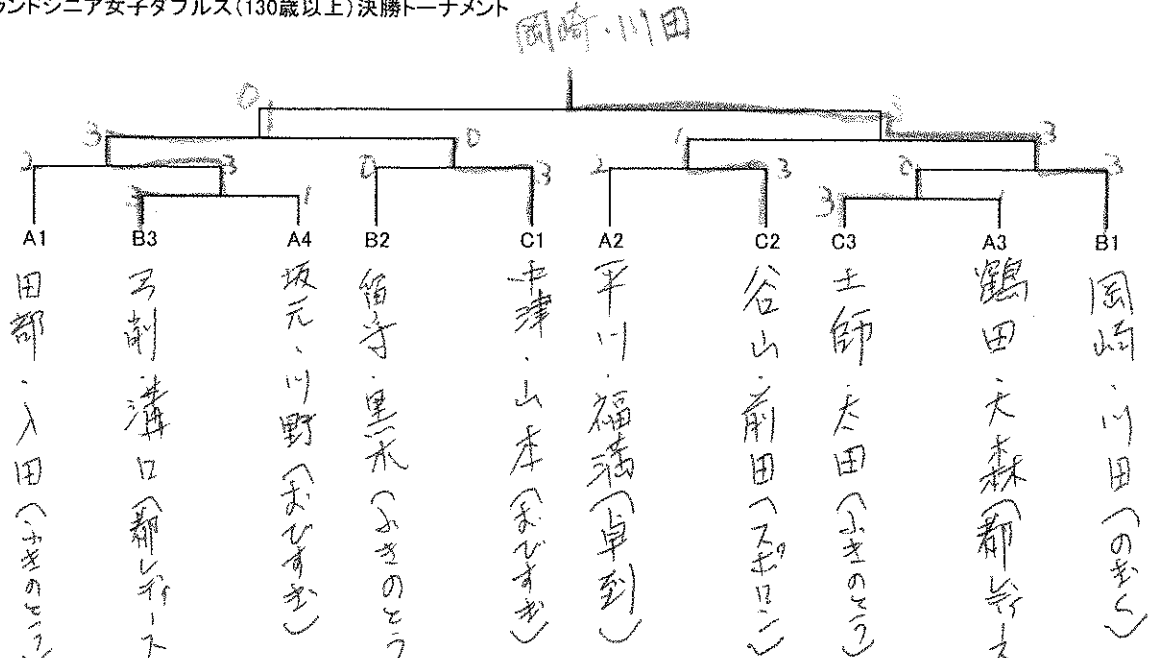 ランドシニア女子ダブルス(130歳以上)決勝トーナメント
岡崎・川田
0 3
3 0 1 3
2 3 0 3 2 3 0 3
3 1 3
A1 B3 A4 B2 C1 A2 C2 C3 A3 B1
田部・入田(ふきのとう)
弓削・溝口(都レディース
坂元・川野(おびすぎ)
留守・黒木(ふきのとう
津・山本(おびすぎ)
平川・福満(卓到)
谷山・前田(スポロン)
土師・太田(ふきのとう)
鶴田・大森(都レディース
岡崎・川田(のぎく)